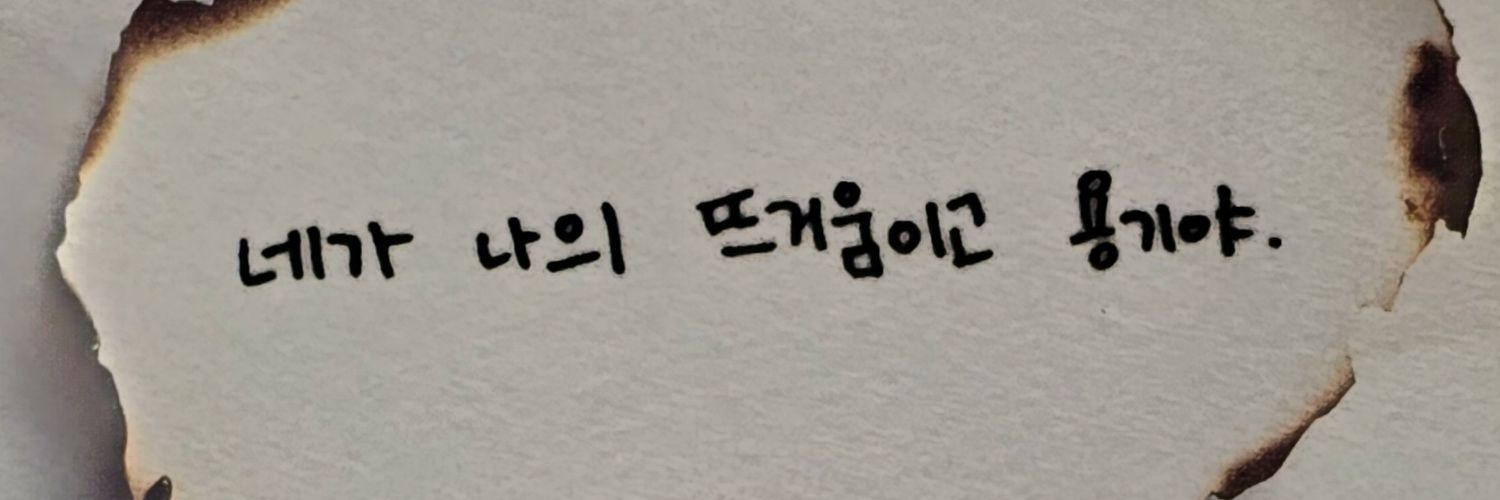 네가 나의 뜨거움이고 용기야.